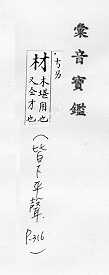 彙音寶鑑
材
木堪用也
又仝才也
（皆下平聲）
P.316